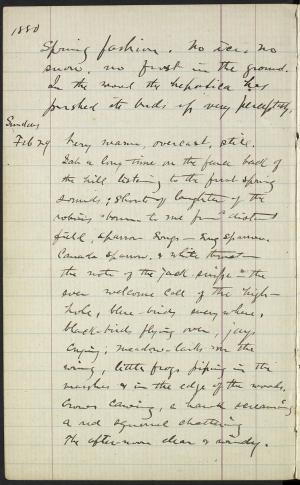 1880
Spring fashion. No ice, no
snow, no frost in the ground.
In the wood the hepatica has
pushed its buds up very perceptibly.
Sunday
Feb 29 Very warm, overcast, still.
Sat a long time on the fence back of
the hill listening to the first spring
sounds; shouts & laughter of the
robins borne to me from distant
field, sparrow songs — song sparrow
Canada sparrow, & white throat —
the note of the Jack snipe — the
ever welcome call of the high-
hole, blue-birds every where,
black-birds flying over, jays
crying, meadow-larks on the
wing, little frogs piping in the
marshes & in the edge of the woods.
Crows cawing, a hawk screaming
a red squirrel chattering
The afternoon clear & windy.